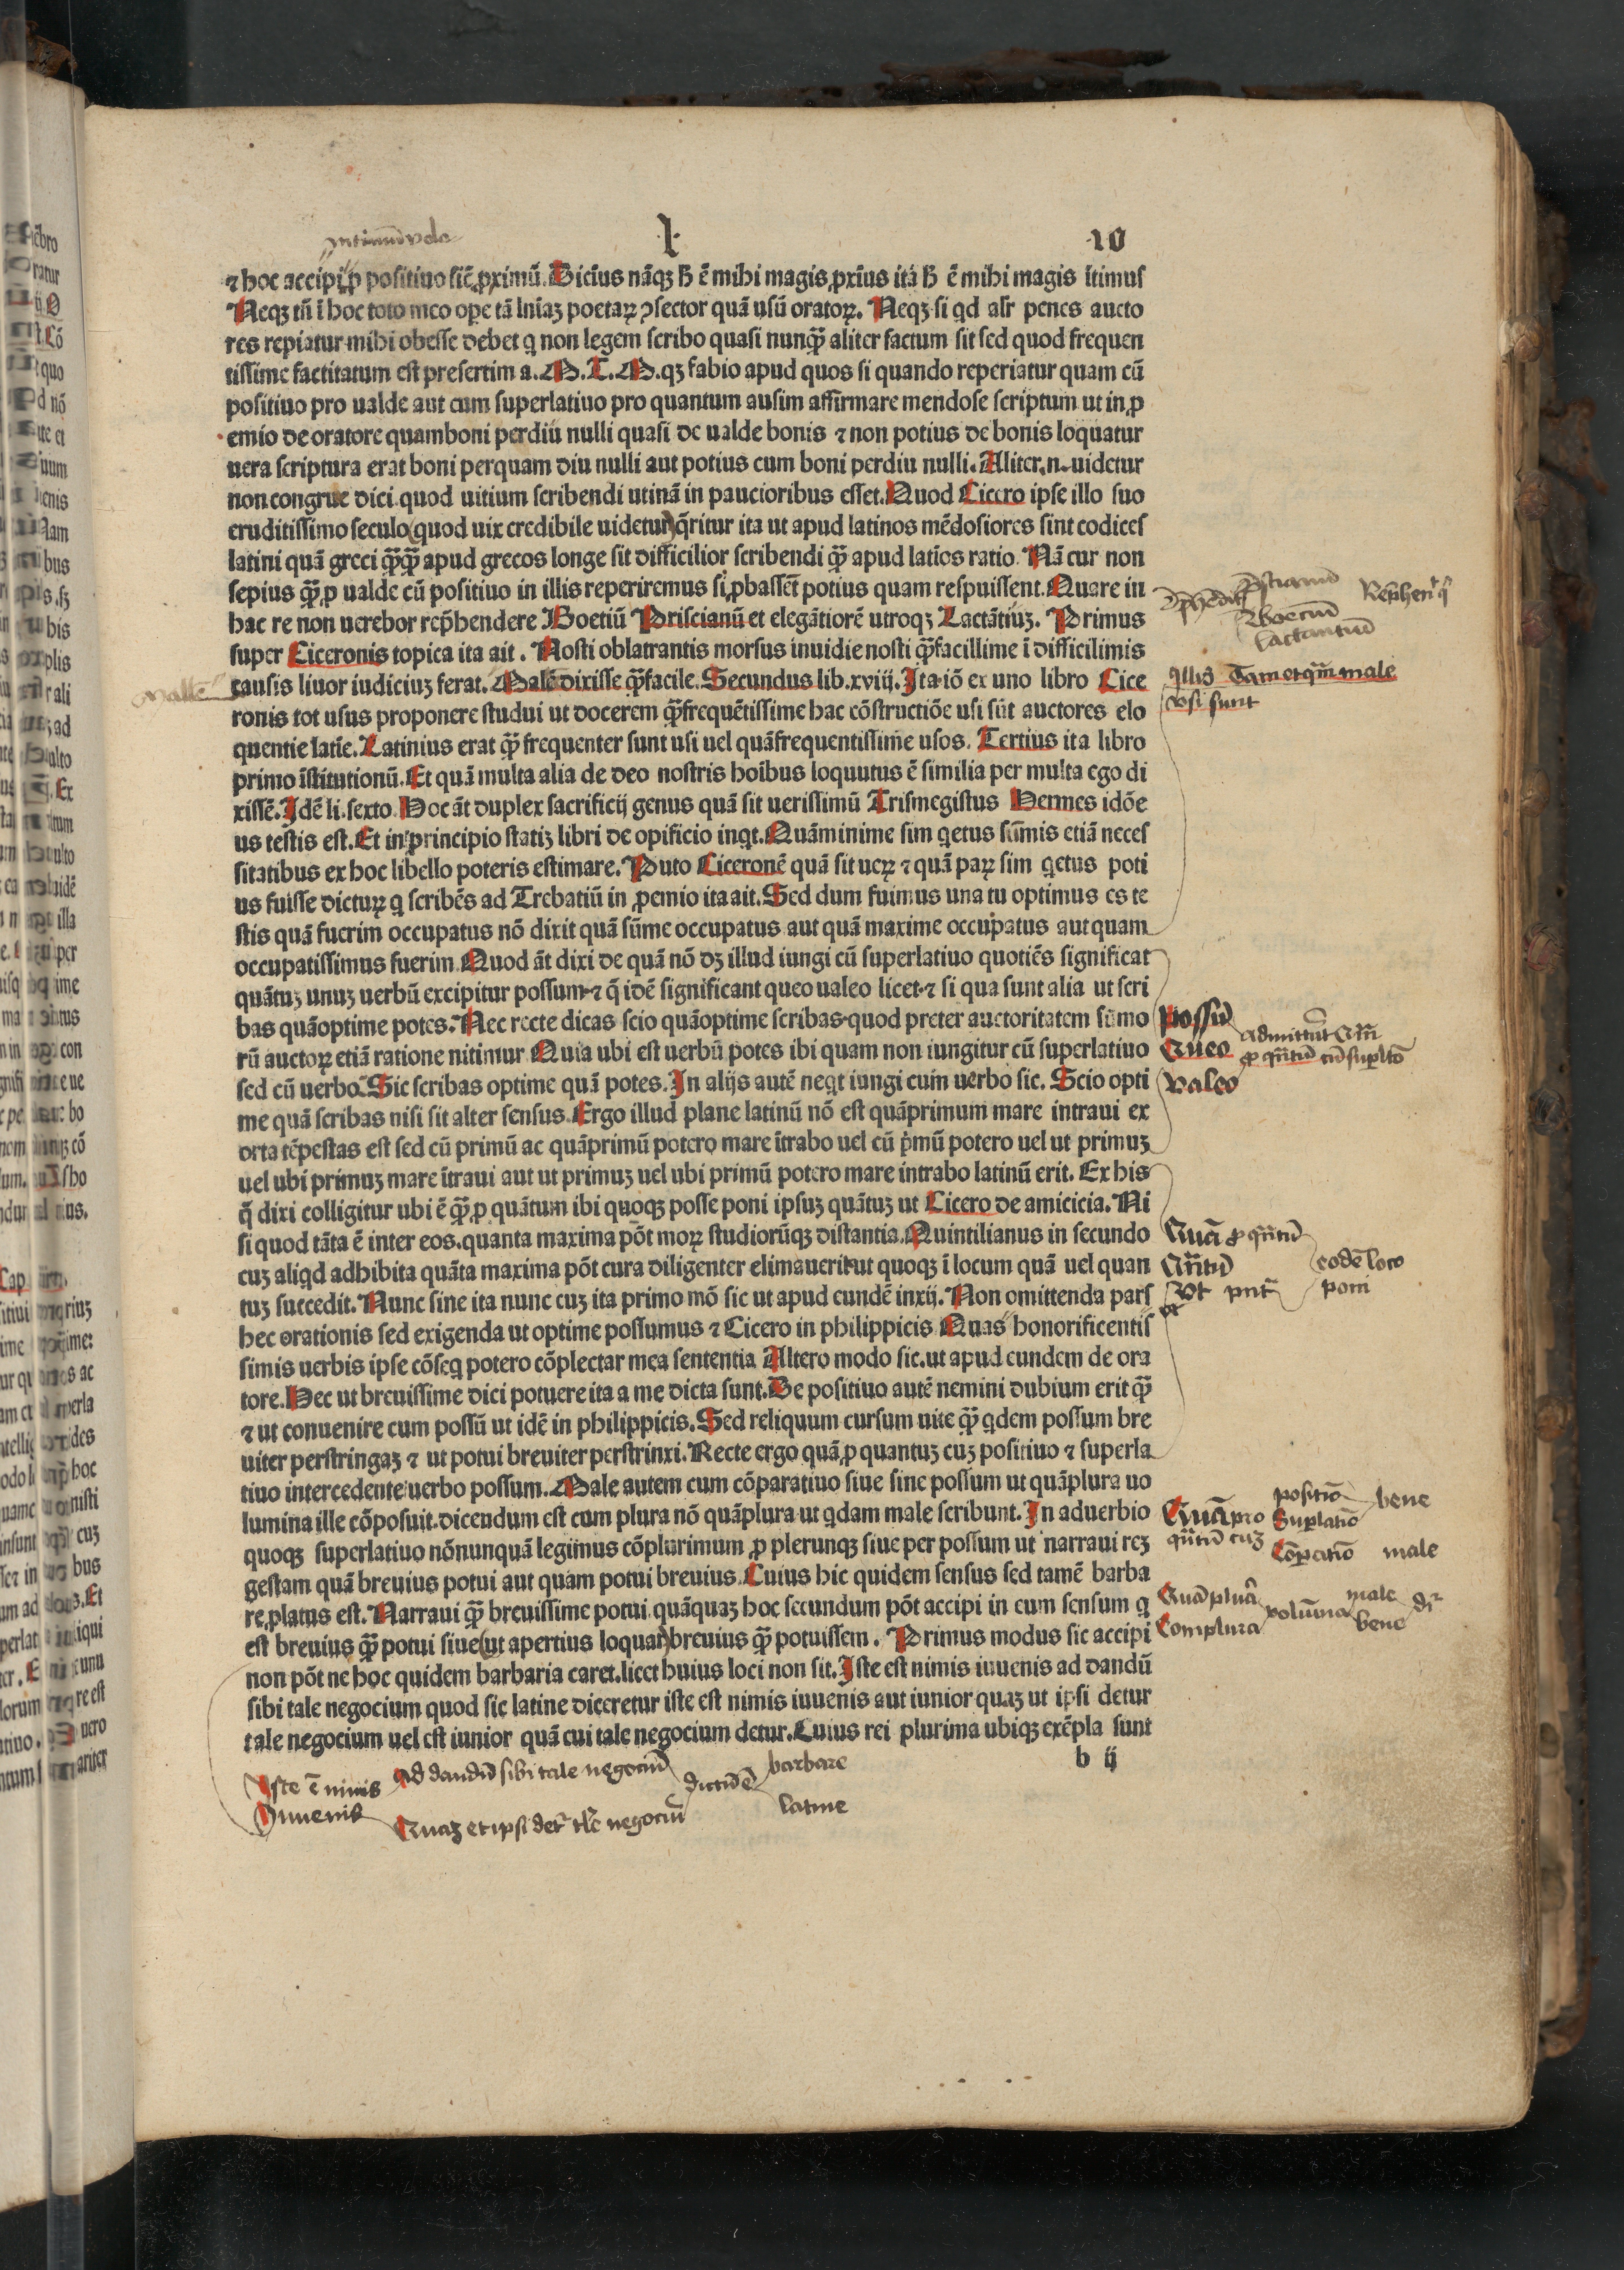 I
10
⁊ hoc accipi ꝓ positiuo sic̄ ꝓximū. Dicim̄us nāqꝫ h̄ ē mihi magis ꝓxīus itā h̄ ē mihi magis ītimus
Neqꝫ tn̄ ī hoc toto meo oꝑe tā lnīaꝫ poetaꝝ ꝯsector quā usū oratoꝝ. Neqꝫ si qd alr̄ penes aucto
res repiatur mihi obesse debet q non legem scribo quasi nunqꝫ̄ aliter factum sit sed quod frequen
tissime factitatum est presertim a. M. T. M. qꝫ fabio apud quos si quando reperiatur quam cū
positiuo pro ualde aut cum superlatiuo pro quantum ausim affirmare mendose scriptum ut in ꝓ
emio de oratore quamboni perdiū nulli quasi de ualde bonis ⁊ non potius de bonis loquatur
uera scriptura erat boni perquam diu nulli aut potius cum boni perdiu nulli. Aliter .n. uidetur
non congrue dici quod uitium scribendi utinā in paucioribus esset. Quod Cicero ipse illo suo
eruditissimo seculo (quod uix credibile uidetur) q̄ritur ita ut apud latinos mēdosiores sint codices
latini quā greci qꝫ̄qꝫ̄ apud grecos longe sit difficilior scribendi qꝫ̄ apud latīos ratio. Nā cur non
sepius qꝫ̄ ꝓ ualde cū positiuo in illis reperiremus si ꝓbassēt potius quam respuissent. Quare in
hac re non uerebor rep̄hendere Boetiū Priscianū et elegātiorē utroqꝫ Lactātiuꝫ. Primus
super Ciceronis topica ita ait. Nosti oblatrantis morsus inuidie nosti qꝫ̄facillime ī difficilimis
causis liuor iudiciuꝫ ferat. Malē dixisse qꝫ̄facile. Secundus lib. xviij. Ita iō ex uno libro Cice
ronis tot usus proponere studui ut docerem qꝫ̄frequētissime hac cōstructiōe usi sūt auctores elo
quentie latīe. Latinius erat qꝫ̄ frequenter sunt usi uel quāfrequentissime usos. Tertius ita libro
primo īstitutionū. Et quā multa alia de deo nostris hoībus loquutus ē similia per multa ego di
xissē. Idē li. sexto. Hoc āt duplex sacrificij genus quā sit uerissimū Trismegistus Hermes idōe
us testis est. Et in principio statiꝫ libri de opificio inqt. Quāminime sim qetus sūmis etiā neces
sitatibus ex hoc libello poteris estimare. Puto Ciceronē quā sit ueꝝ ⁊ quā paꝝ sim qetus poti
us fuisse dictuꝝ q scribēs ad Trebatiū in ꝓemio ita ait. Sed dum fuimus una tu optimus es te
stis quā fuerim occupatus nō dixit quā sūme occupatus aut quā maxime occupatus aut quam
occupatissimus fuerim. Quod āt dixi de quā nō dꝫ illud iungi cū superlatiuo quotiēs significat
quātuꝫ unuꝫ uerbū excipitur possum ⁊ q̄ idē significant queo ualeo licet ⁊ si qua sunt alia ut scri
bas quāoptime potes. Nec recte dicas scio quāoptime scribas quod preter auctoritatem sūmo
rū auctoꝝ etiā ratione nitimur Quia ubi est uerbū potes ibi quam non iungitur cū superlatiuo
sed cū uerbo. Sic scribas optime quā potes. In alijs autē neqt iungi cum uerbo sic. Scio opti
me quā scribas nisi sit alter sensus. Ergo illud plane latinū nō est quāprimum mare intraui ex
orta tēpestas est sed cū primū ac quāprimū potero mare ītrabo uel cū pͥmū potero uel ut primuꝫ
uel ubi primuꝫ mare ītraui aut ut primuꝫ uel ubi primū potero mare intrabo latinū erit. Ex his
q̄ dixi colligitur ubi ē qꝫ̄ ꝓ quātum ibi quoqꝫ posse poni ipsuꝫ quātuꝫ ut Cicero de amicicia. Ni
si quod tāta ē inter eos. quanta maxima pōt moꝝ studiorūqꝫ distantia. Quintilianus in secundo
cuꝫ aliqd adhibita quāta maxima pōt cura diligenter elimauerit ut quoqꝫ ī locum quā uel quan
tuꝫ succedit. Nunc sine ita nunc cuꝫ ita primo mō sic ut apud eundē in xij. Non omittenda pars
hec orationis sed exigenda ut optime possumus ⁊ Cicero in philippicis Quas honorificentis
simis uerbis ipse cōseq potero cōplectar mea sententia Altero modo sic. ut apud eundem de ora
tore. Hec ut breuissime dici potuere ita a me dicta sunt. De positiuo autē nemini dubium erit qꝫ̄
⁊ ut conuenire cum possū ut idē in philippicis. Sed reliquum cursum uite qꝫ̄ qdem possum bre
uiter perstringaꝫ ⁊ ut potui breuiter perstrinxi. Recte ergo quā ꝓ quantuꝫ cuꝫ positiuo ⁊ superla
tiuo intercedente uerbo possum. Male autem cum cōparatiuo siue sine possum ut quāplura uo
lumina ille cōposuit. dicendum est cum plura nō quāplura ut qdam male scribunt. In aduerbio
quoqꝫ superlatiuo nōnunquā legimus cōplurimum ꝓ plerunqꝫ siue per possum ut narraui reꝫ
gestam quā breuius potui aut quam potui breuius. Cuius hic quidem sensus sed tamē barba
re ꝓlatus est. Narraui qꝫ̄ breuissime potui quāquaꝫ hoc secundum pōt accipi in eum sensum q
est breuius qꝫ̄ potui siue (ut apertius loquar) breuius qꝫ̄ potuissem. Primus modus sic accipi
non pōt ne hoc quidem barbaria caret. licet huius loci non sit. Iste est nimis iuuenis ad dandū
sibi tale negocium quod sic latine diceretur iste est nimis iuuenis aut iunior quaꝫ ut ipsi detur
tale negocium uel est iunior quā cui tale negocium detur. Cuius rei plurima ubiqꝫ exēpla sunt
b ij
Mallē
Boeciū
lactantiū
male
vsi sunt
Possū
Queo
valeo
Quā ꝓ
eodē loco
poni
Quā pro
positiō
Suꝑlatiō
bene
male
Complura
male
bene
Iste ē nimis
Iuuenis
Ad dandū sibi tale negociū
Quaꝫ et ipsi
negociū
dictū ē
barbare
latine